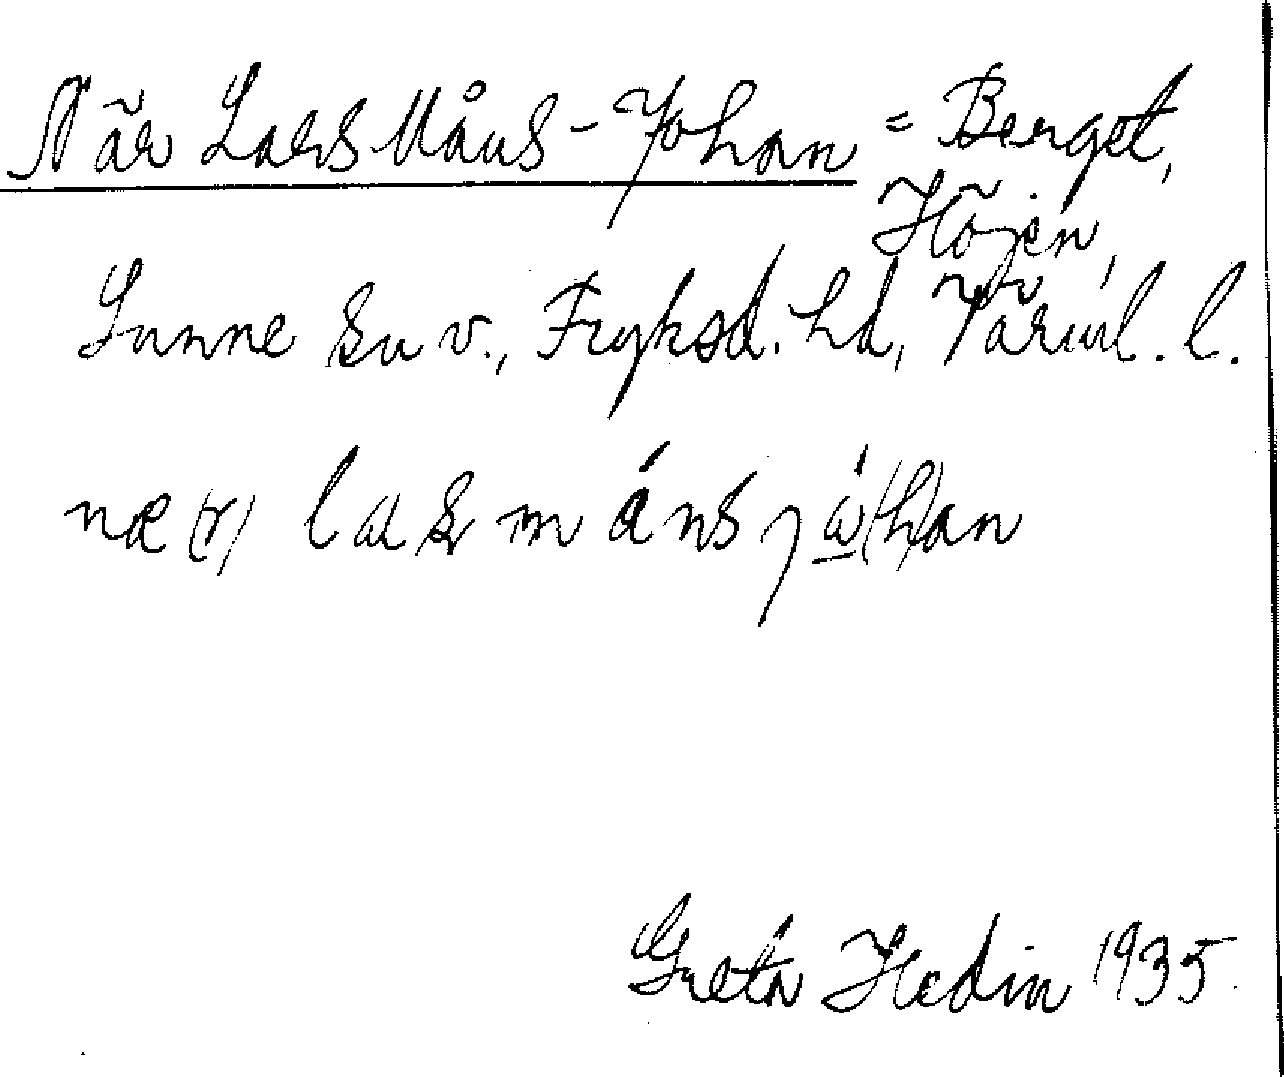 När Lars Måns-Johan = Berget,
Höjen,
Sunne sn v., Fryksd. hd, Värml. l.
næ(r) las mánsjò(h)an
Greta Hedin 1935.